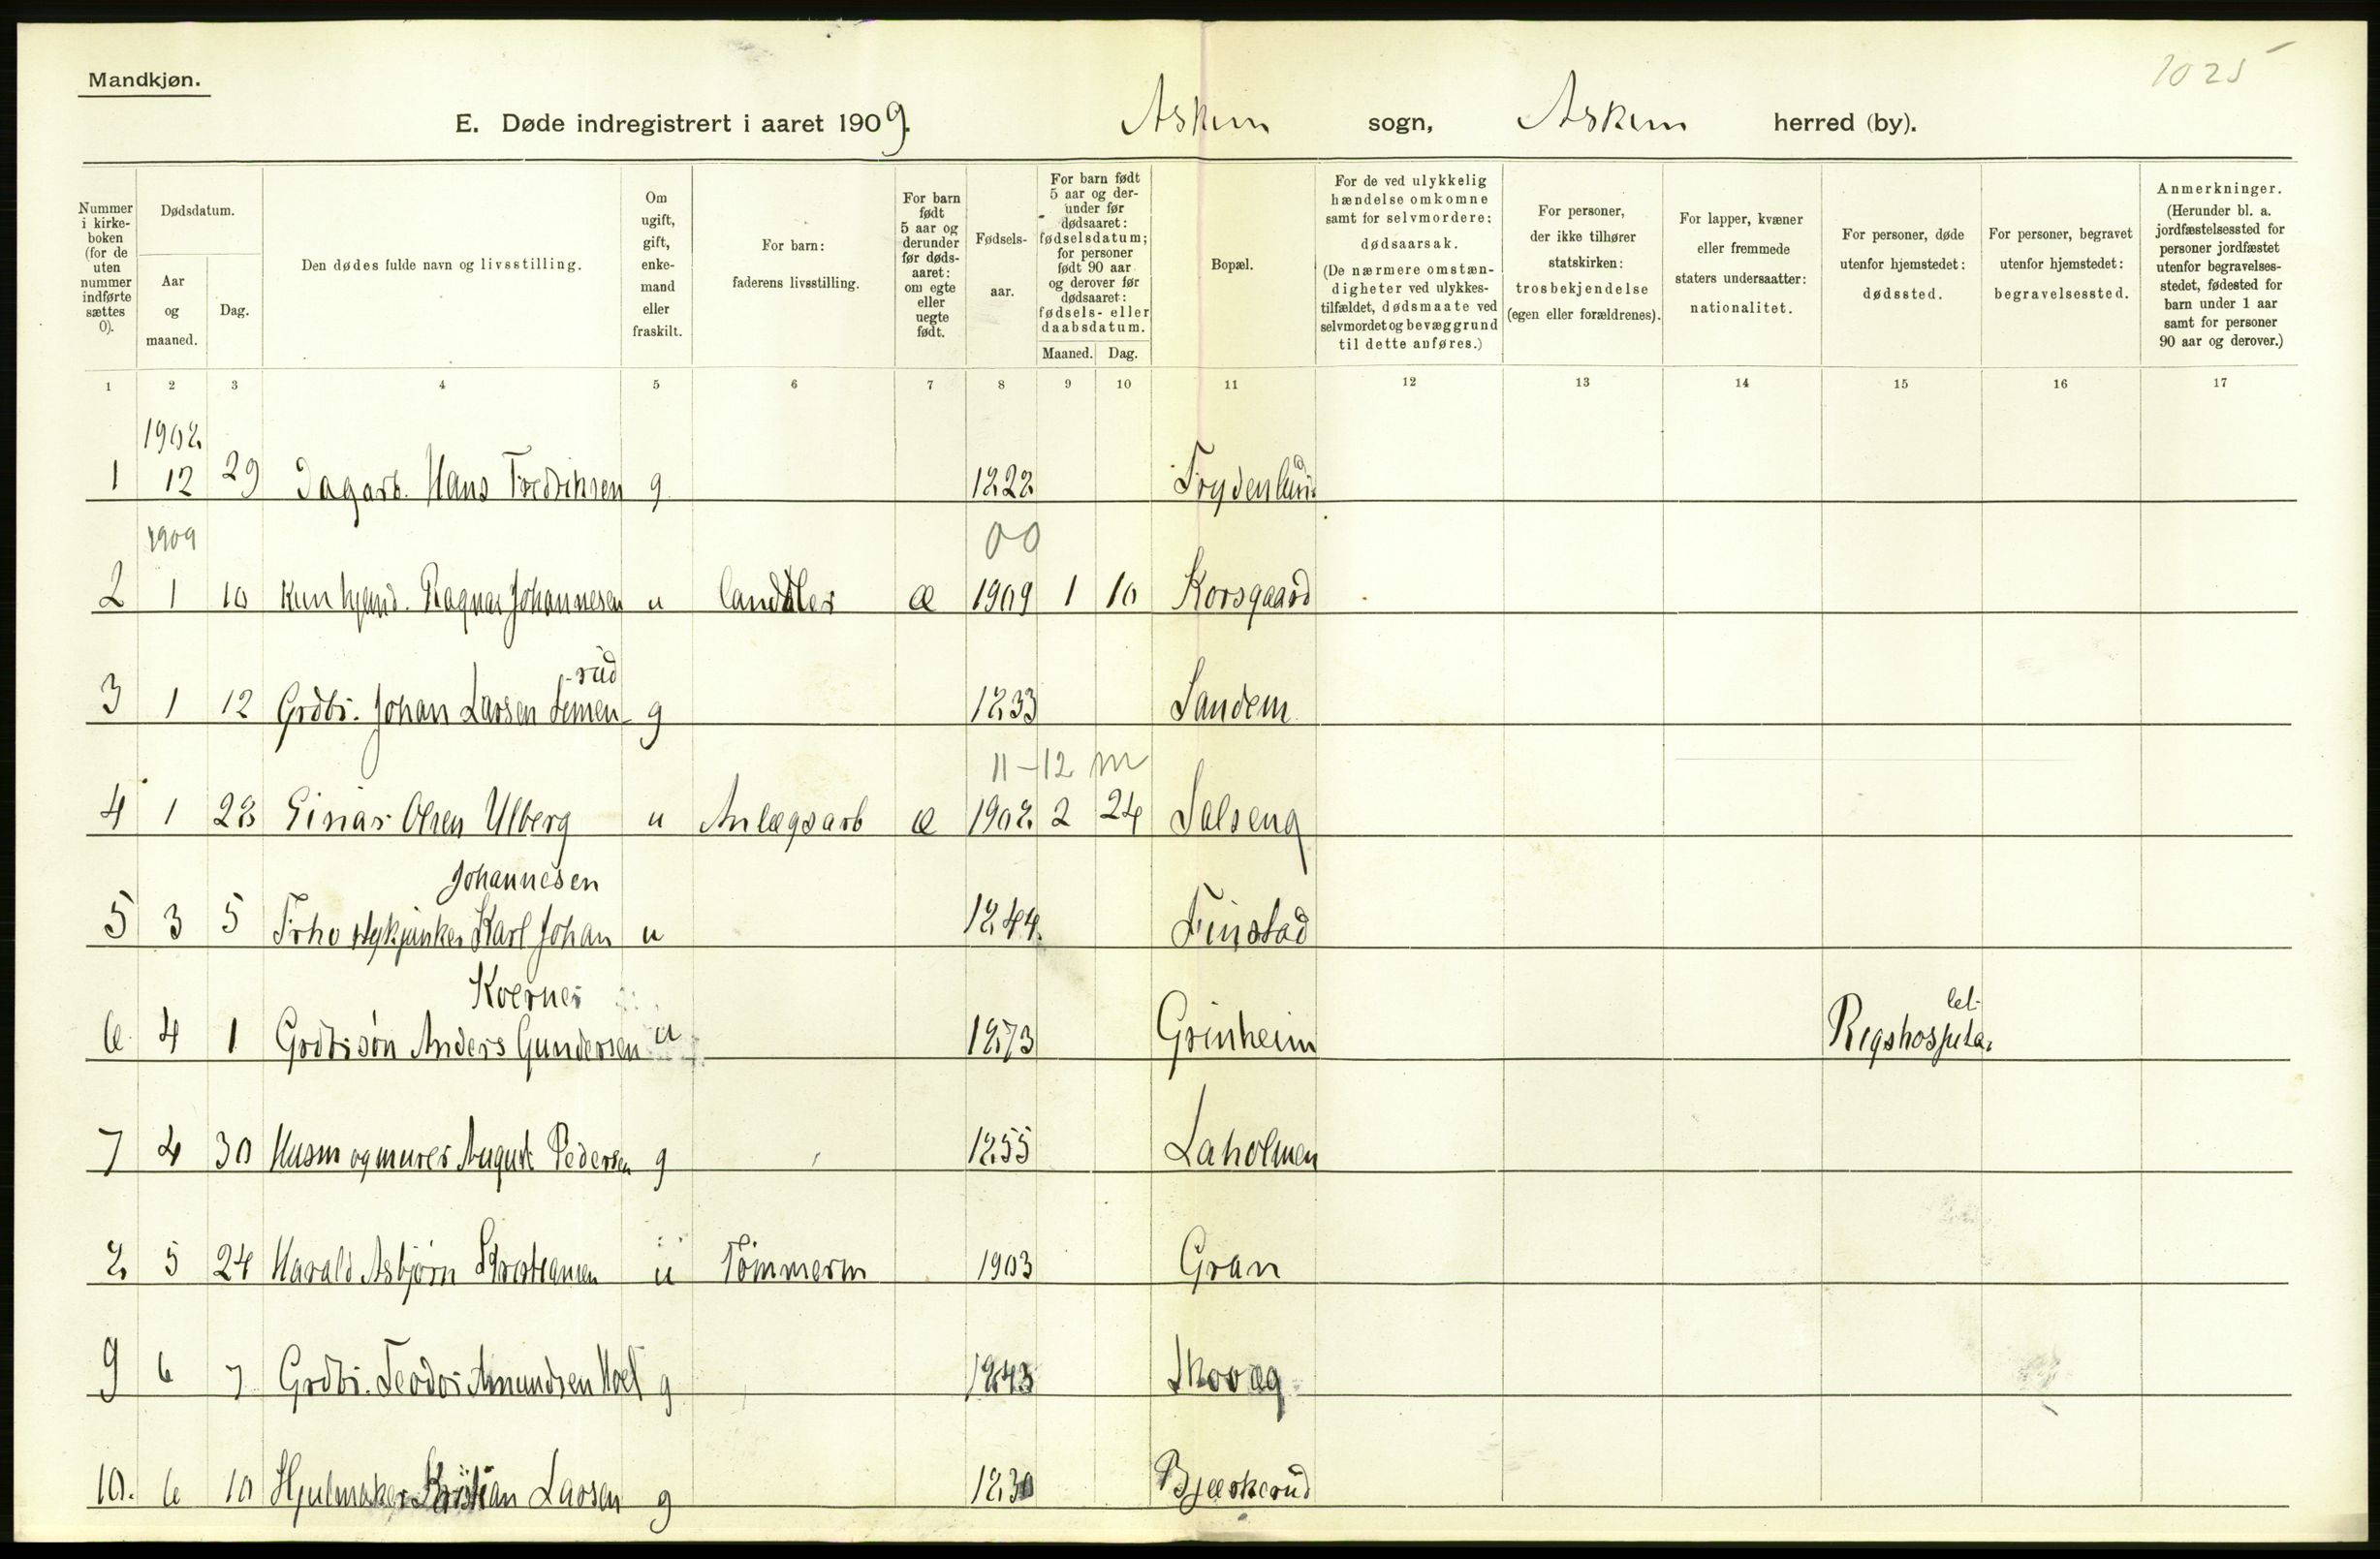 1025
Mandkjøn.
E. Døde indregistrert i aaret 1909. Askim sogn, Askim herred (by).
Nummer i kirke-boken (for de uten nummer indførte sættes 0).
Dødsdatum.
Aar og maaned.
Dag.
Den dødes fulde navn og livsstilling.
Om ugift, gift, enke-mand eller fraskilt.
For barn: faderens livsstilling.
For barn født 5 aar og derunder før døds-aaret: om egte eller uegte født.
Fødsels-aar.
For barn født 5 aar og der-under før dødsaaret: fødselsdatum; for personer født 90 aar og derover før dødsaaret: fødsels- eller daabsdatum.
Maaned. Dag.
Bopæl.
For de ved ulykkelig hændelse omkomne samt for selvmordere: dødsaarsak. (De nærmere omstæn-digheter ved ulykkes-tilfældet, dødsmaate ved selvmordet og bevæggrund til dette anføres.)
For personer, der ikke tilhører statskirken: trosbekjendelse (egen eller forældrenes).
For lapper, kvæner eller fremmede staters undersaatter: nationalitet.
For personer, døde utenfor hjemstedet: dødssted.
For personer, begravet utenfor hjemstedet: begravelsessted.
Anmerkninger. (Herunder bl. a. jordfæstelsessted for personer jordfæstet utenfor begravelses-stedet, fødested for barn under 1 aar samt for personer 90 aar og derover.)
1 2 3 4 5 6 7 8 9 10 11 12 13 14 15 16 17
1908
1 12 29 Dagarb. Hans Fredriksen g 1828 Frydenlund
1909 00
2 1 10 Ragnar Johannesen u Landhler æ 1909 1 10 Korsgaard
-rud
3 1 12 Grdbr. Johan Larsen Lemen- g 1833 Sandem
11-12 m
4 1 28 Einar Olsen Ulberg u Anlægsarb æ 1908 2 24 Salseng
Johannesen
5 3 5 Karl Johan u 1844 Finstad
Koerner let.
6 4 1 Grdbrsøn Anders Gundersen u 1873 Grinheim Rigshospita-
7 4 30 Husm og murer August Pedersen g 1855 Laholmen
8 5 24 Harald Asbjørn Kristiansen u Tømmerm 1903 Gran
9 6 7 Grdbr. Teodor Amundsen Hoel g 1843 Skovæg
10. 6 10 Hjulmaker Kristian Larsen g 1830 Bjerkerud